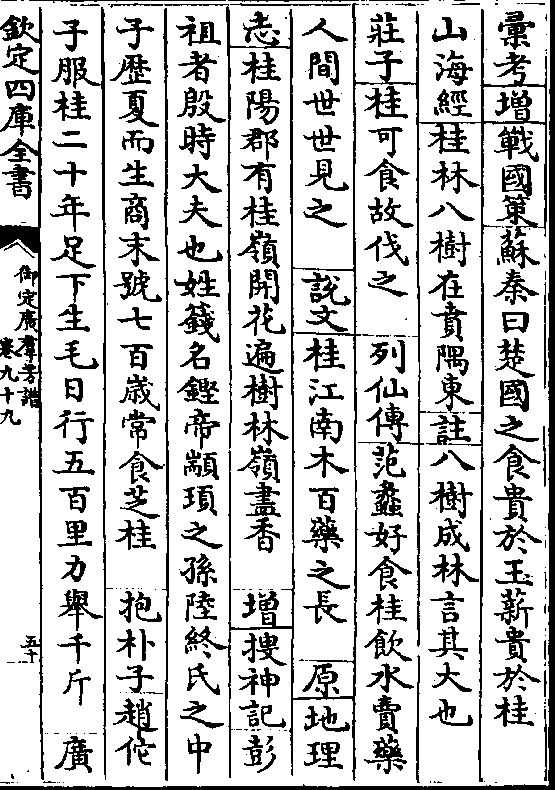 彚考增戰國策蘇秦曰楚國之食貴於玉薪貴於桂
山海經桂林八樹在賁隅東註八樹成林言其大也
莊子桂可食故伐之 列仙傳范蠡好食桂飲水賣藥
人間世世見之 說文桂江南木百藥之長 原地理
志桂陽郡有桂嶺開花遍樹林嶺盡香 增搜神記彭
祖者殷時大夫也姓籛名鏗帝顓頊之孫陸終氏之中
子歷夏而生商末號七百歳常食芝桂 抱朴子趙佗
子服桂二十年足下生毛日行五百里力舉千斤 廣
欽定四庫全書
御定廣羣芳譜
卷九十九
五十